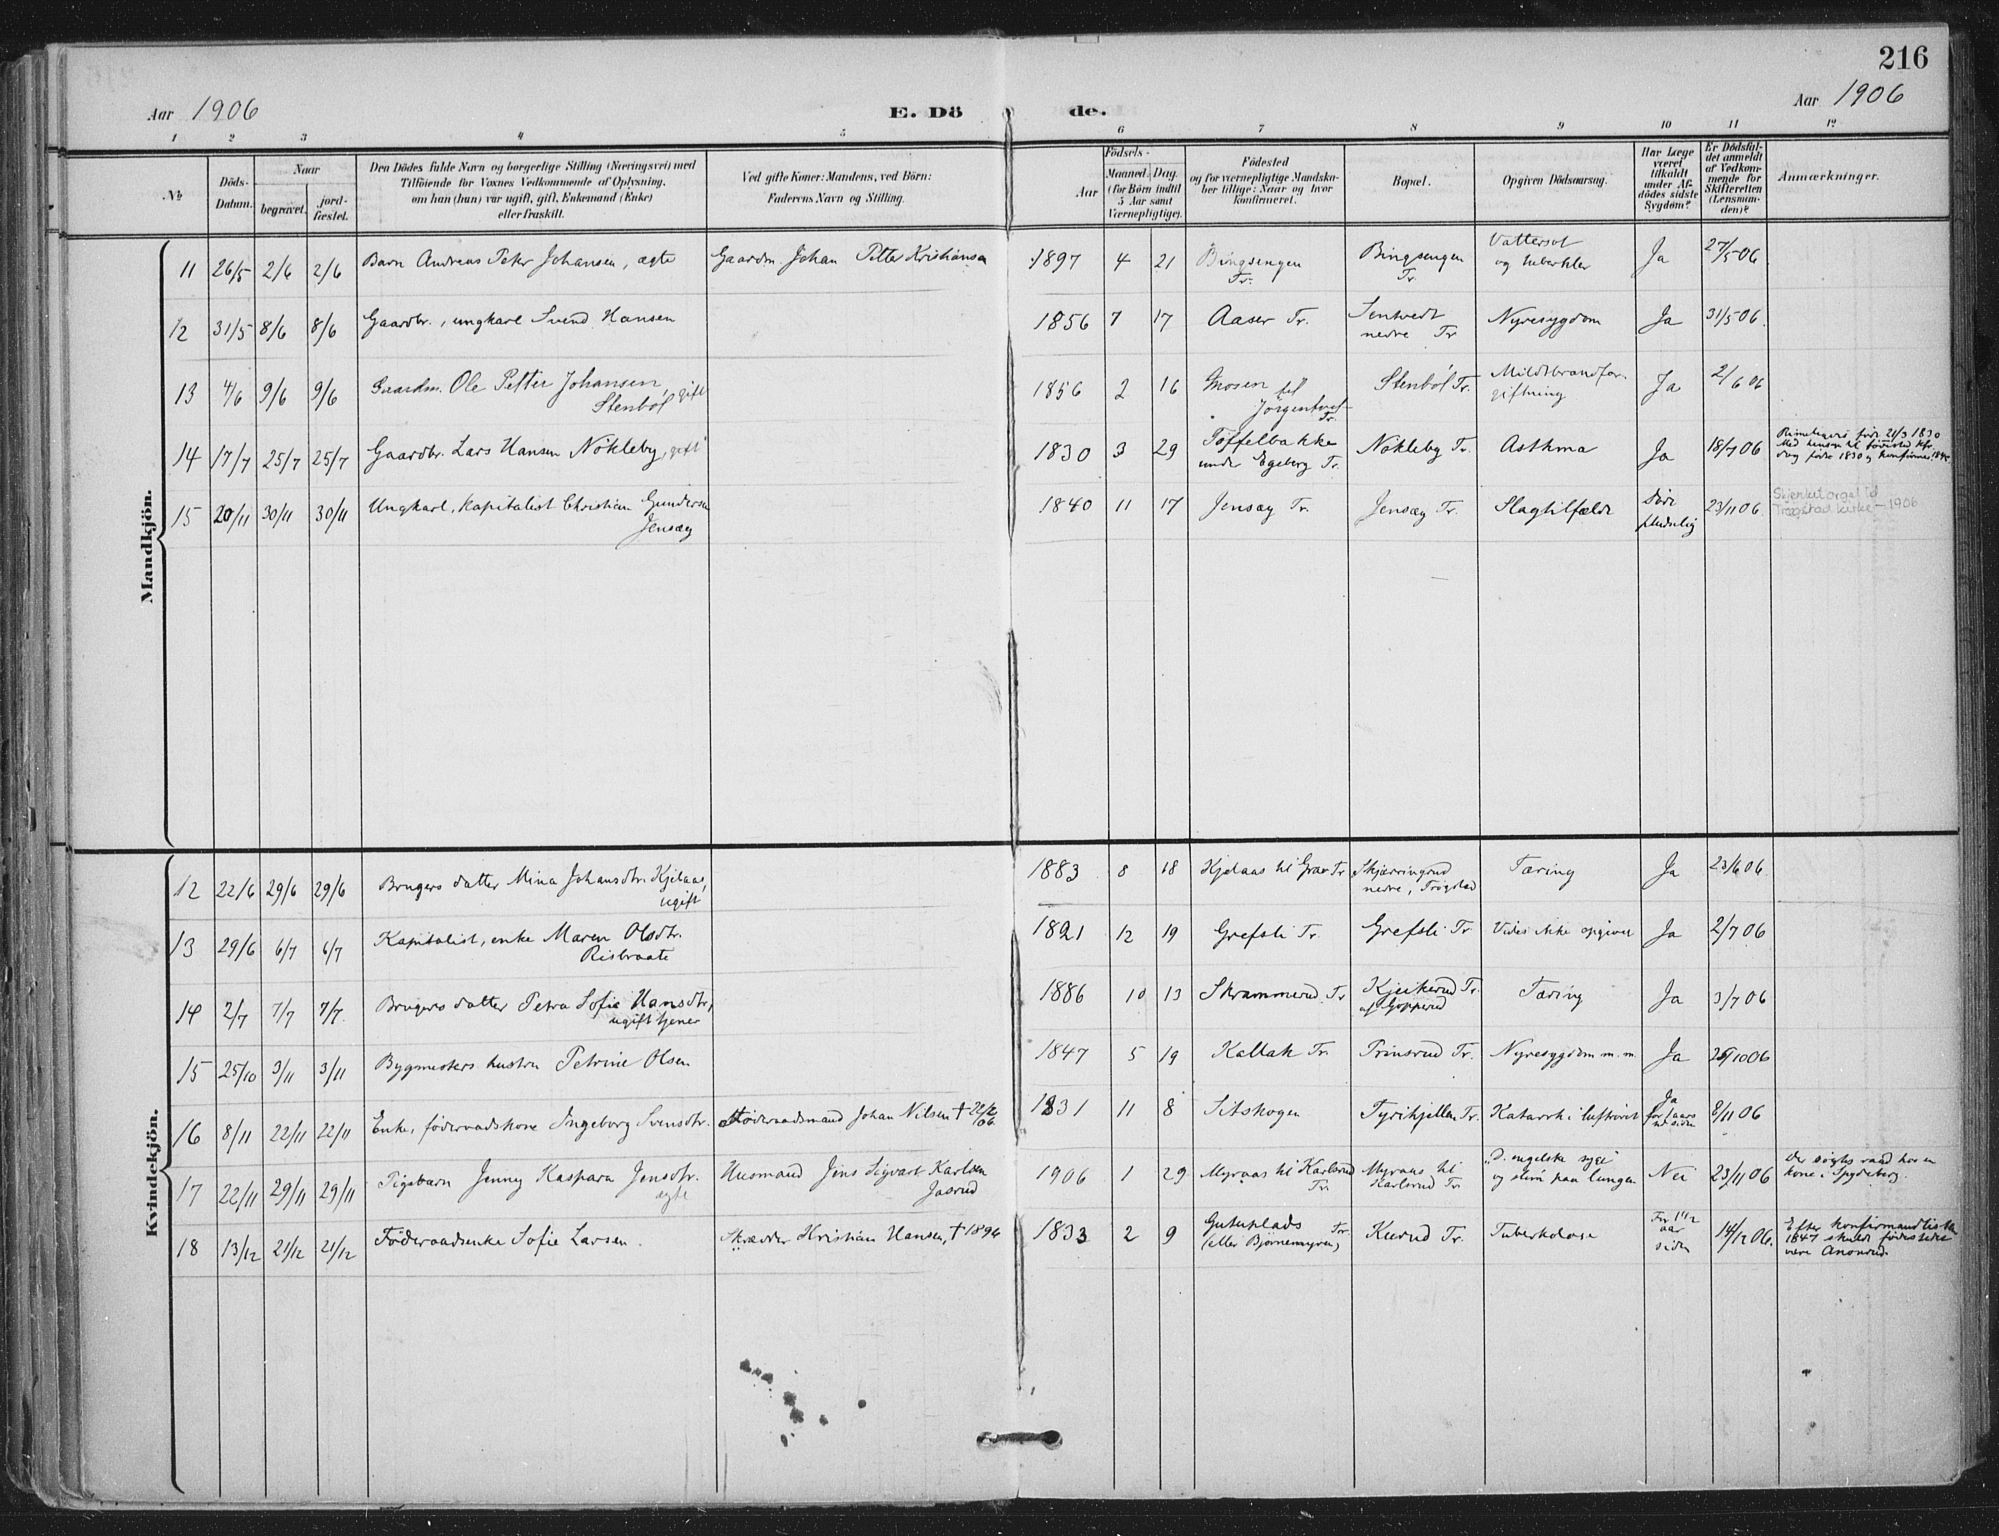 216
Aar 1906
E. Dö
de.
Aar 1906
1 2 3 4 5 6 7 8 9 10 11 12
№
Döds-
Datum.
Naar
begravet.
jord-
fæstet.
Den Dödes fulde Navn og borgerlige Stilling (Næringsvei) med
Tilföiende for Voxnes Vedkommende af Oplysning,
om han (hun) var ugift, gift, Enkemand (Enke)
eller fraskilt.
Ved gifte Koner: Mandens, ved Börn:
Faderens Navn og Stilling.
Födsels-
Aar
Maaned. Dag.
(for Börn indtil
5 Aar samt
Værnepligtige).
Födested
og for værnepligtige Mandska-
ber tillige: Naar og hvor
konfirmeret.
Bopæl.
Opgiven Dödsaarsag.
Har Læge
været
tilkaldt
under Af-
dödes sidste
Sygdom?
Er Dödsfal-
det anmeldt
af Vedkom-
mende for
Skifteretten
(Lensman-
den)?
Anmærkninger.
Mandkjön.
11 26/5 2/6 2/6 Barn Andreas Peter Johansen, ægte Gaardm. Johan Petter Kristiansen 1897 4 21 Bingsengen Tr. Bingsengen Tr. Vattersot og tuberkler Ja 27/5 06
12 31/5 8/6 8/6 Gaardbr., ungkarl Svend Hansen 1856 7 17 Aaser Tr. Sentvedt nedre Tr Nyresygdom Ja 31/5 06.
13 4/6 9/6 9/6 Gaardm. Ole Petter Johansen Stenböl gift 1856 2 16 Mosen til Tr. Stenböl Tr. Miltbrandfor- giftning Ja 2/6 06
14 17/7 25/7 25/7 Gaardbr. Lars Hansen Nökleby, gift 1830 3 29 Töffelbakke under Egeberg Tr. Nökleby Tr. Asthma Ja 18/7 06 födt 21/3 1830
15 20/11 30/11 30/11 Ungkarl, kapitalist Christian Gundersen Jensæg 1840 11 17 Jensæg Tr. Jensæg Tr. Slagtilfælde Döde pludselig 23/11 06. Skjenket orgel til Trøgstad kirke – 1906
Kvindekjön.
12 22/6 29/6 29/6 Brugers datter Mina Johansdtr. Kjelaas, ugift 1883 8 18 Kjelaas til Grav Tr Skjærringrud nedre, Trögstad Tæring Ja 23/6 06
13 29/6 6/7 6/7 Kapitalist, enke Maren Olsdtr. Risbraate 1821 12 19 Grefsli Tr. Grefsli Tr Vides ikke opgivet Ja 2/7 06
14 2/7 7/7 7/7. Brugers datter Petra Sofie Hansdtr, ugift tjener 1886 10 13 Skrammerud Tr Kjeikerud Tr. Gopperud Tæring Ja 3/7 06
15 25/10 3/11 3/11 Bygmesters hustru Petrine Olsen 1847 5 19 Kallak Tr. Prinsrud Tr. Nyresygdom m.m. Ja 26/10 06
16 8/11 22/11 22/11 Enke, föderaadskone Ingeborg Svensdtr. Föderaadsmand Johan Nilsen † 1831 11 8 Sitskogen Tyrihjellen Tr. Katarrh i luftröret Ja for 1 aars tid siden 8/11 06
17 22/11 29/11 29/11 Pigebarn Jenny Kaspara Jensdtr. ægte Husmand Jens Sigvart Karlsen Jasrud 1906 1 29 Myraas til Karlsrud Tr. Myraas til Karlsrud Tr. "D. engelske syge" og slim paa lungen Nei 23/11 06 Der sögtes raad hos en kone i Spydeberg.
18 13/12 21/12 21/12 Föderaadsenke Sofie Larsen. Skrædder Kristian Hansen, † 1896 1833 2 9 Gutuplads Tr. (eller Björnemyren) Kverud Tr. Tuberkolose For 1 1/2 aar siden 14/12 06. Efter konfirmandliste 1847 skulde födested være Anonrud.